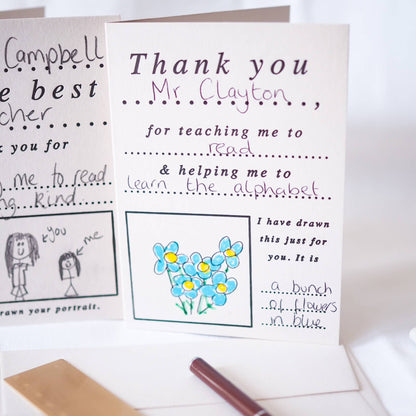 Campbell
e best
cher
k you for
g me to read
ng kind
you
me
rawn your portrait.
Thank you
Mr Clayton,
for teaching me to
read
& helping me to
learn the alphabet
I have drawn
this just for
you. It is
a bunch
of flowers
in blue